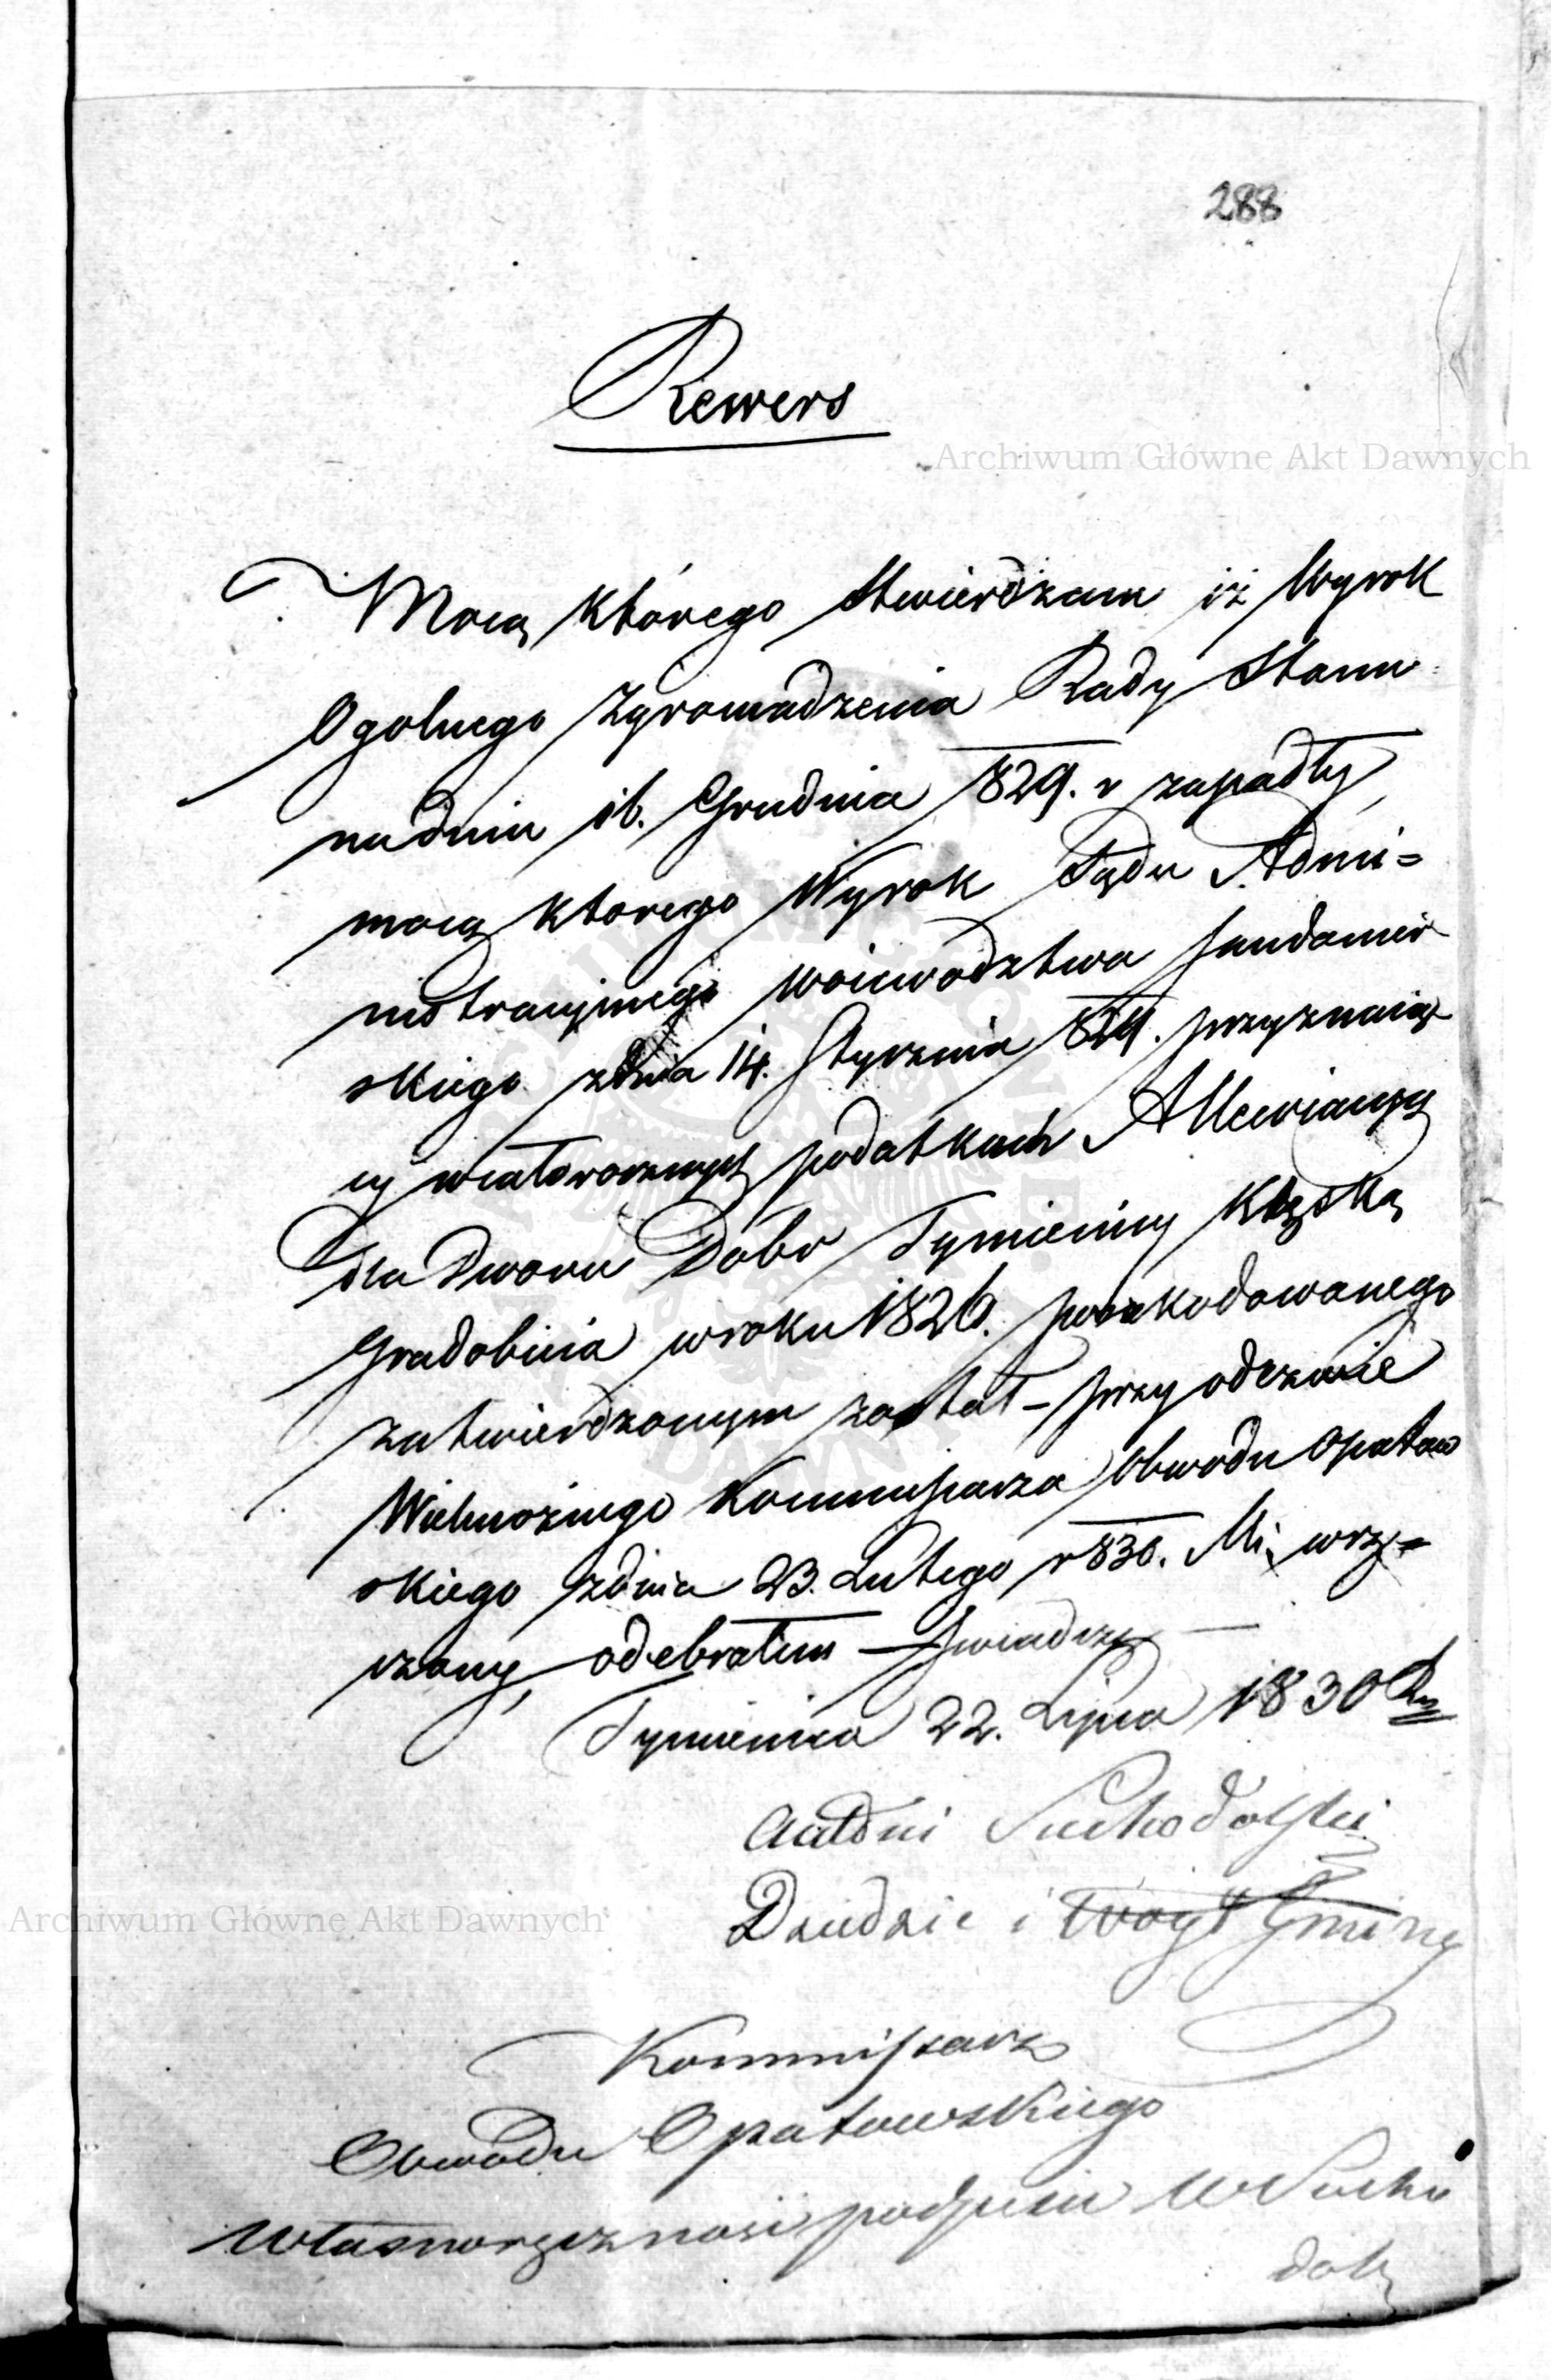 288
Rewers
Archiwum Główne Akt Dawnych
Mocą którego Stwierdzam iż Wyrok
Ogolnego Zgromadzenia Rady Stanu
na dniu 16. Grudnia 829. r zapadły,
mocą ktorego Wyrok Sądu Admi=
nistracyjnego Woiewodztwa Sandomir
skiego zdnia 14. Stycznia 829. przyznaią
cy wcałorocznych podatkach Allewiancyą
dla Dworu Dobr Tymienicy klęską
Gradobicia w roku 1826. poszkodowanego
zatwierdzonym został – przy odezwie
Wielmożnego Kommissarza Obwodu Opatow
skiego zdnia 23. Lutego r 830. Mi, wrę=
czony, odebrałem – Świadczę –
Tymienica 22. Lipca 1830 Ru
Antoni Suchodolski
Dziedzic i Woyt Gminy
Archiwum Główne Akt Dawnych
Kommissarz
Obwodu Opatowskiego
Własnoręcznosci podpisu W Sucho
dols